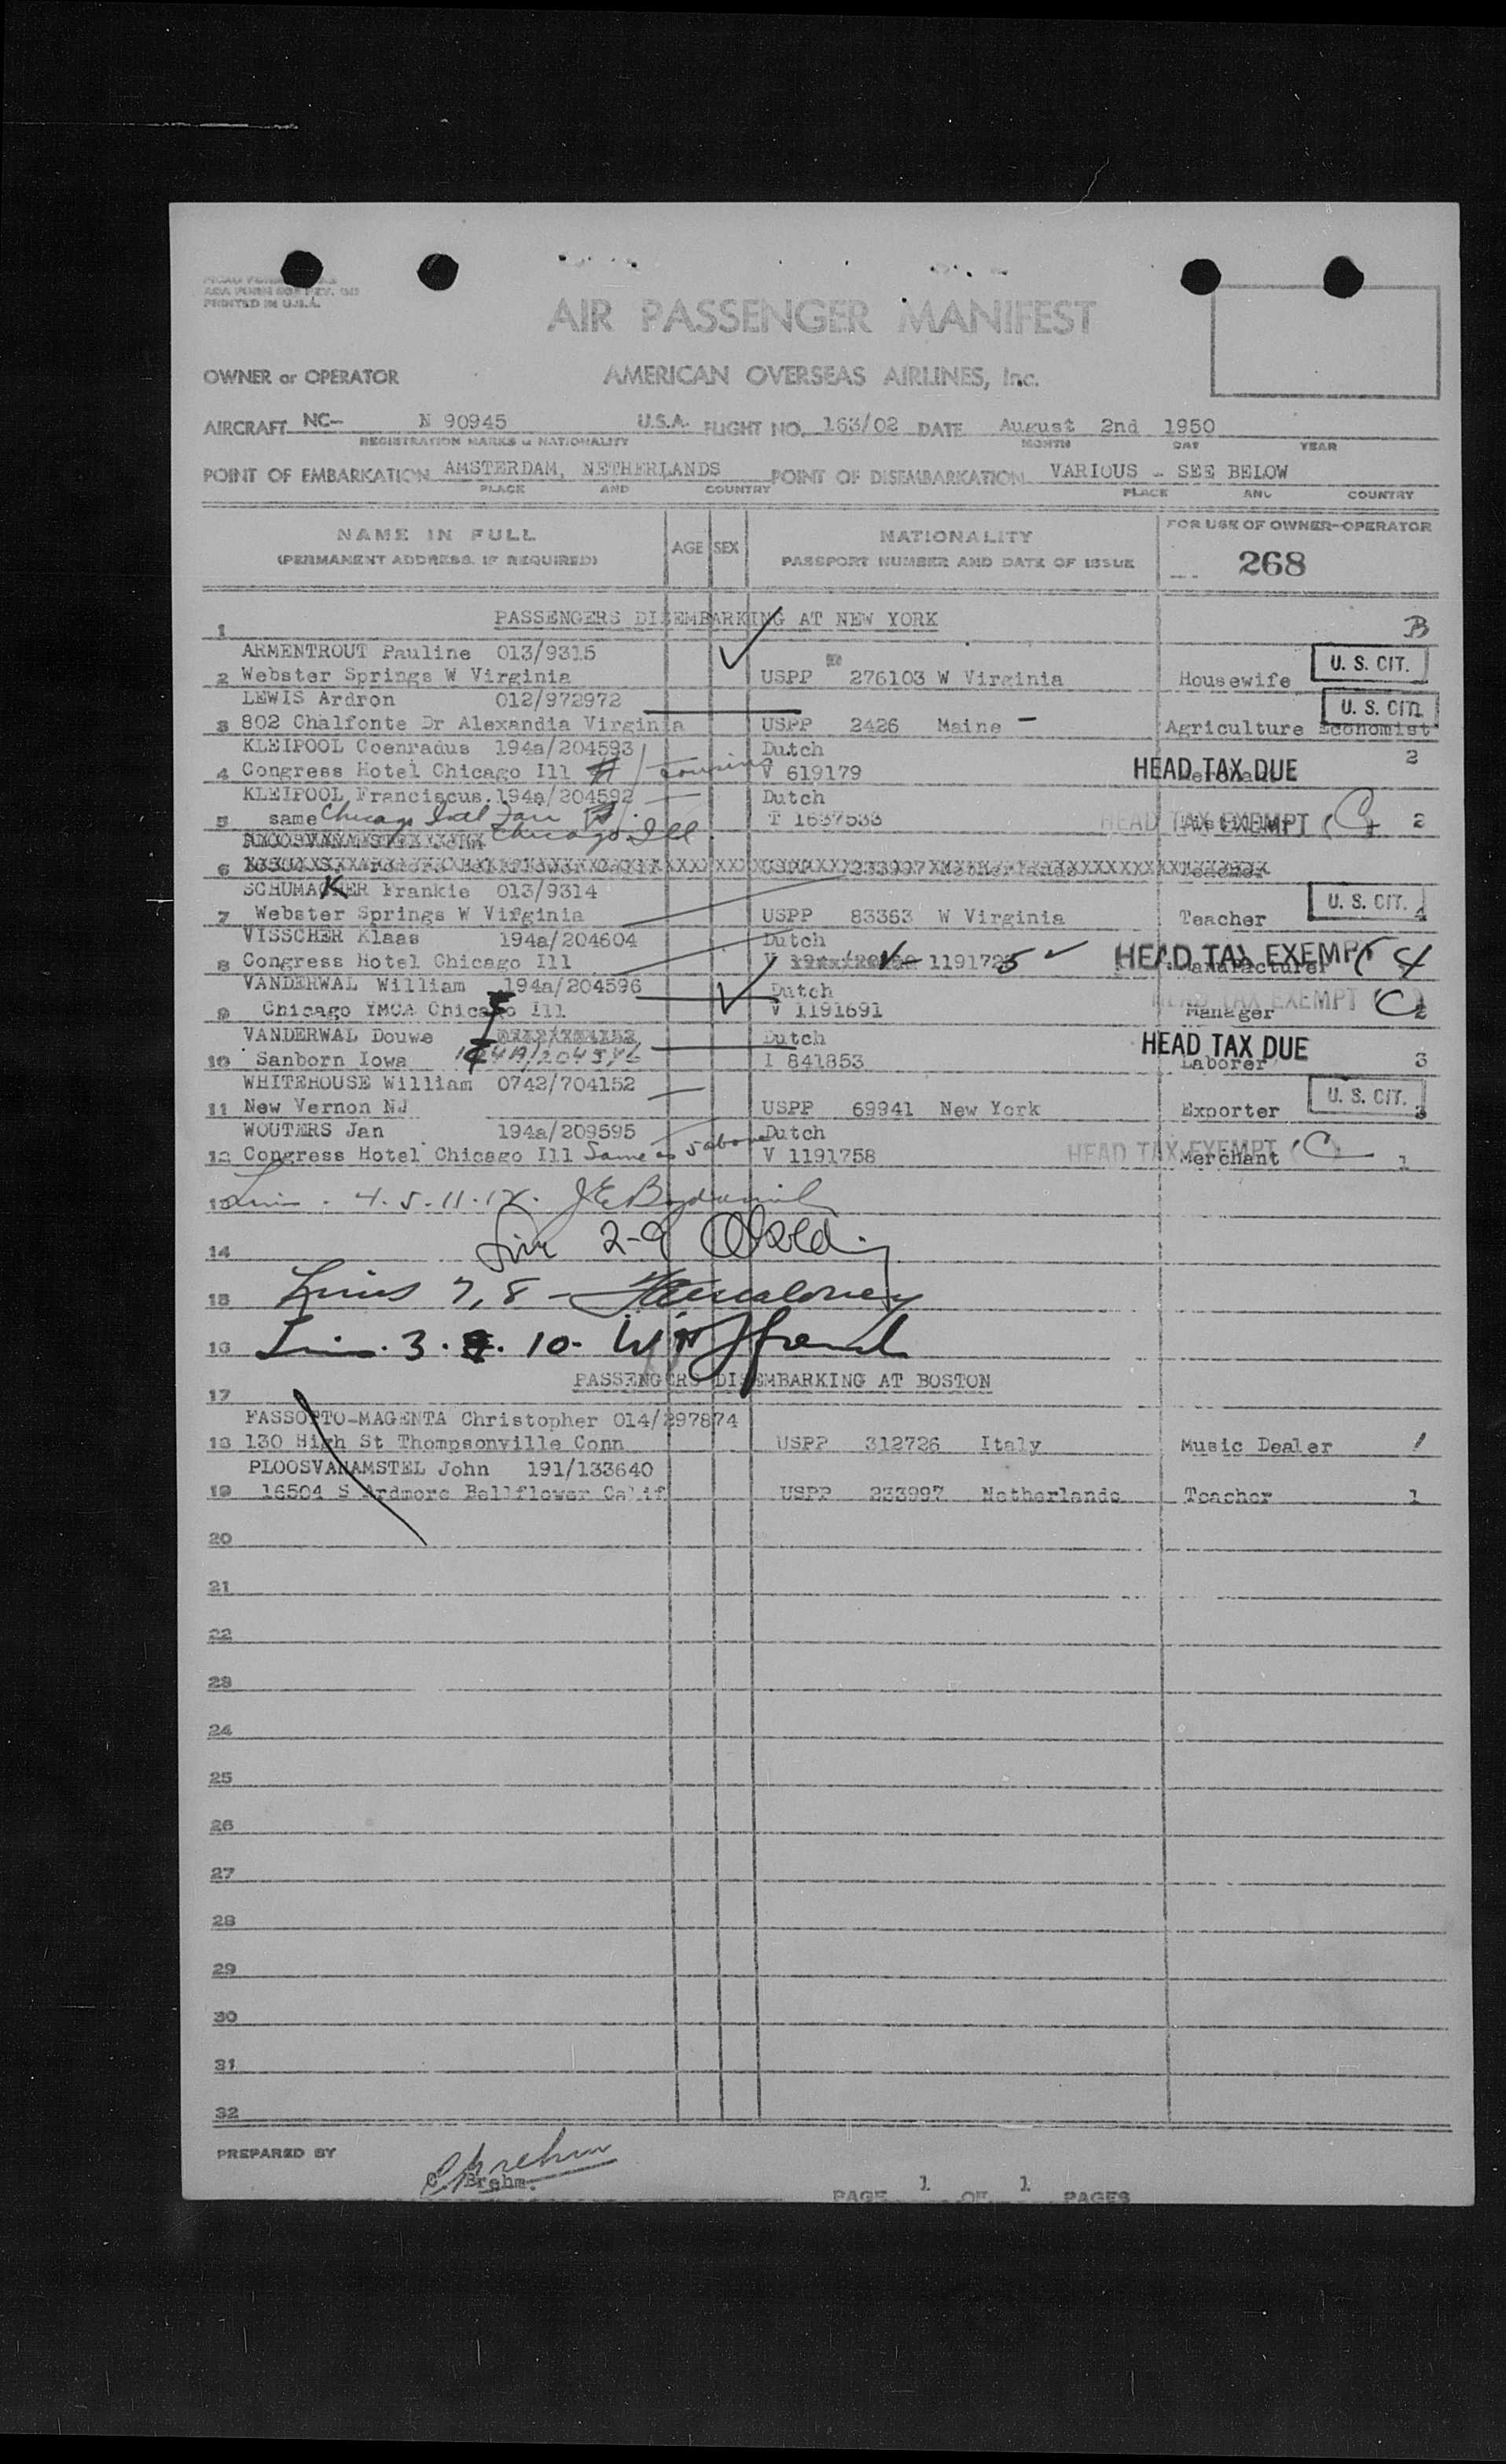 PRINTED IN U.S.A.
AIR PASSENGER MANIFEST
OWNER or OPERATOR AMERICAN OVERSEAS AIRLINES, Inc.
AIRCRAFT NC- N 90945 U.S.A. FLIGHT NO. 163/02 DATE August 2nd 1950
REGISTRATION MARKS & NATIONALITY MONTH DAY YEAR
POINT OF EMBARKATION AMSTERDAM, NETHERLANDS POINT OF DISEMBARKATION VARIOUS - SEE BELOW
PLACE AND COUNTRY PLACE AND COUNTRY
NAME IN FULL AGE SEX NATIONALITY FOR USE OF OWNER-OPERATOR
(PERMANENT ADDRESS. IF REQUIRED) PASSPORT NUMBER AND DATE OF ISSUE 268
1 PASSENGERS DISEMBARKING AT NEW YORK B
ARMENTROUT Pauline 013/9315 U. S. CIT.
2 Webster Springs W Virginia USPP 276103 W Virginia Housewife
LEWIS Ardron 012/972972 U. S. CIT.
3 802 Chalfonte Dr Alexandia Virginia USPP 2426 Maine - Agriculture Economist
KLEIPOOL Coenradus 194a/204593 Dutch 2
4 Congress Hotel Chicago Ill cousins V 619179 HEAD TAX DUE
KLEIPOOL Franciscus 194a/204592 Dutch
5 same Chicago Intl Fair T 1637533 HEAD TAX EXEMPT (C) 2
Chicago Ill.
6 USPP 233997 Netherlands Teacher
SCHUMACKER Frankie 013/9314 U. S. CIT.
7 Webster Springs W Virginia USPP 83363 W Virginia Teacher 4
VISSCHER Klaas 194a/204604 Dutch HEAD TAX EXEMPT
8 Congress Hotel Chicago Ill V 1191725 Manufacturer 4
VANDERWAL William 194a/204596 Dutch HEAD TAX EXEMPT (C)
9 Chicago YMCA Chicago Ill V 1191691 Manager 2
VANDERWAL Douwe Dutch HEAD TAX DUE
10 Sanborn Iowa I 841853 Laborer 3
WHITEHOUSE William 0742/704152 U. S. CIT.
11 New Vernon NJ USPP 69941 New York Exporter 3
WOUTERS Jan 194a/209595 Dutch HEAD TAX EXEMPT (C)
12 Congress Hotel Chicago Ill Same as 5 above V 1191758 Merchant 1
13 Lin - 4.5.11.12.
14 Line 2-9
15 Lines 7, 8 -
16 Lin. 3. 10.
17 PASSENGERS DISEMBARKING AT BOSTON
FASSOTTO-MAGENTA Christopher 014/297874
18 130 High St Thompsonville Conn USPP 312726 Italy Music Dealer /
PLOOSVANAMSTEL John 191/133640
19 16504 S Ardmore Bellflower Calif USPP 233997 Netherlands Teacher 1
20
21
22
23
24
25
26
27
28
29
30
31
32
PREPARED BY C Brehm.
PAGE 1 OF 1 PAGES